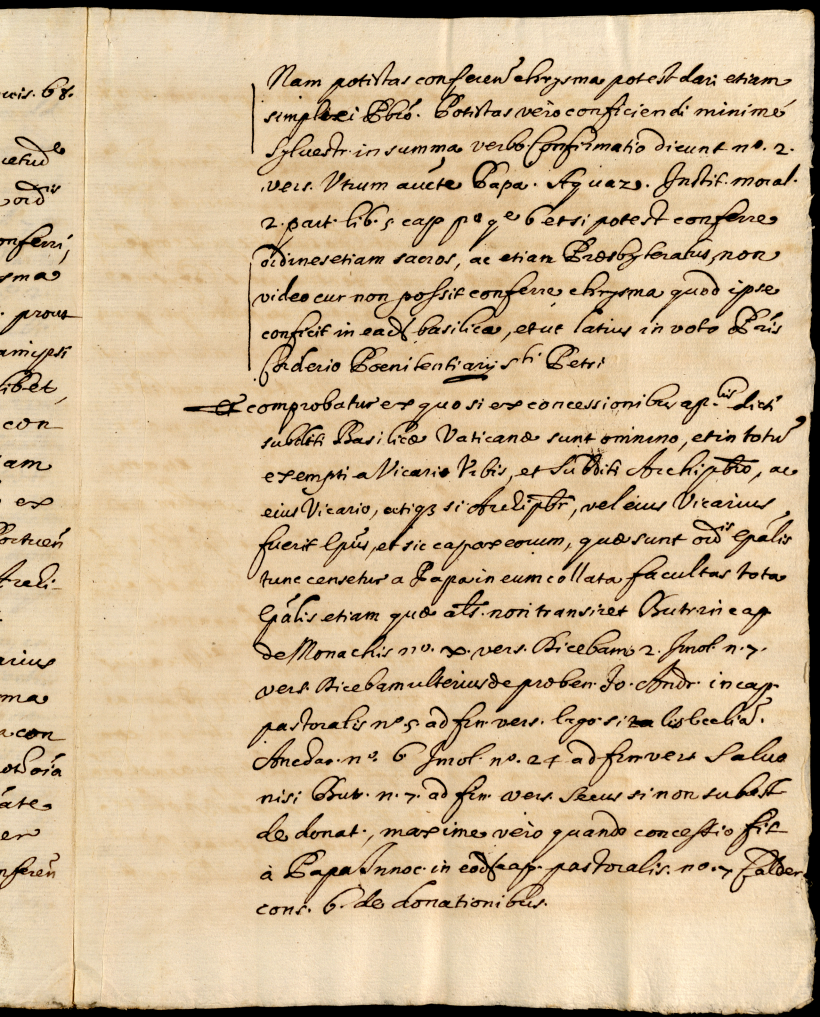 ucis. 68.
onferri,
sma
prout
am ipsi
libet,
con
iam
ex
arius
ma
a con
er
nferen̄
Nam potestas conferen̄ chrysma potest dari etiam
simplici Pbr̄o. Potestas vero conficiendi minimè
Sylvestr. in summa verbo Confirmatio dicunt nº. 2.
vers. Utrum aucte Papa. Aquaz. Instit. moral.
2. part. lib. 5 cap pº qe 6 et si potest conferre
ordines etiam sacros, ac etiam Præsbyteratus, non
video cur non possit conferre chrysma quod ipse
conficit in ead basilica, et ut latius in voto Pr̄is
Corderio Poenitentiarij Sti Petri
Et comprobatur ex quo si ex concessionibus aplis dicti
subditi Basilicæ Vaticanæ sunt omnino, et in totū
exempti a Vicario Urbis, et subditi Archipbr̄o, ac
eius Vicario, utiq3 si Archipbr̄, vel eius Vicarius
fuerit Ep̄us, et sic capax eorum, quæ sunt ordis Ep̄alis
tunc censetur a Papa in eum collata facultas tota
Ep̄alis etiam quæ al̄s. non transiret Butr in cap
de Monachis nº. x. vers. Dicebam 2. Imol. n. 7.
vers. Dicebam ulterius de præben. Jo. Andr. in cap.
pastoralis nº 5 ad fin vers. Ergo si lis
nº. 6 Imol. nº. 24 ad fin vers Salvo
nisi Butr. n. 7. ad fin. vers. Secus si non subest
de donat., maxime vero quando concessio fit
à Papa Innoc. in eod cap. pastoralis. no. 7 Calder.
cons. 6. de donationibus.